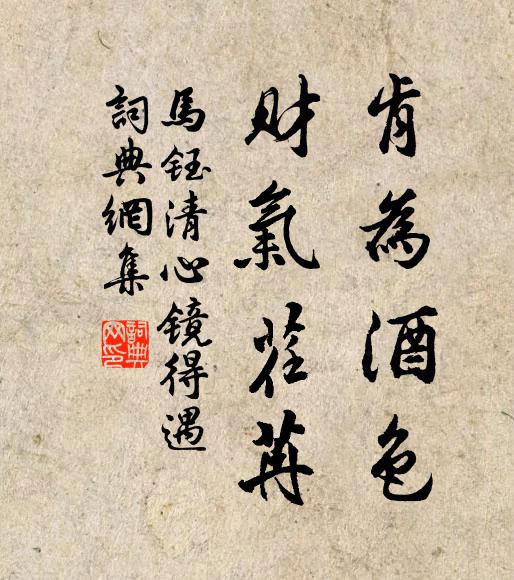 肯為酒色
財氣荏苒
馬鈺清心镜得遇
詞典網集
詞典网印